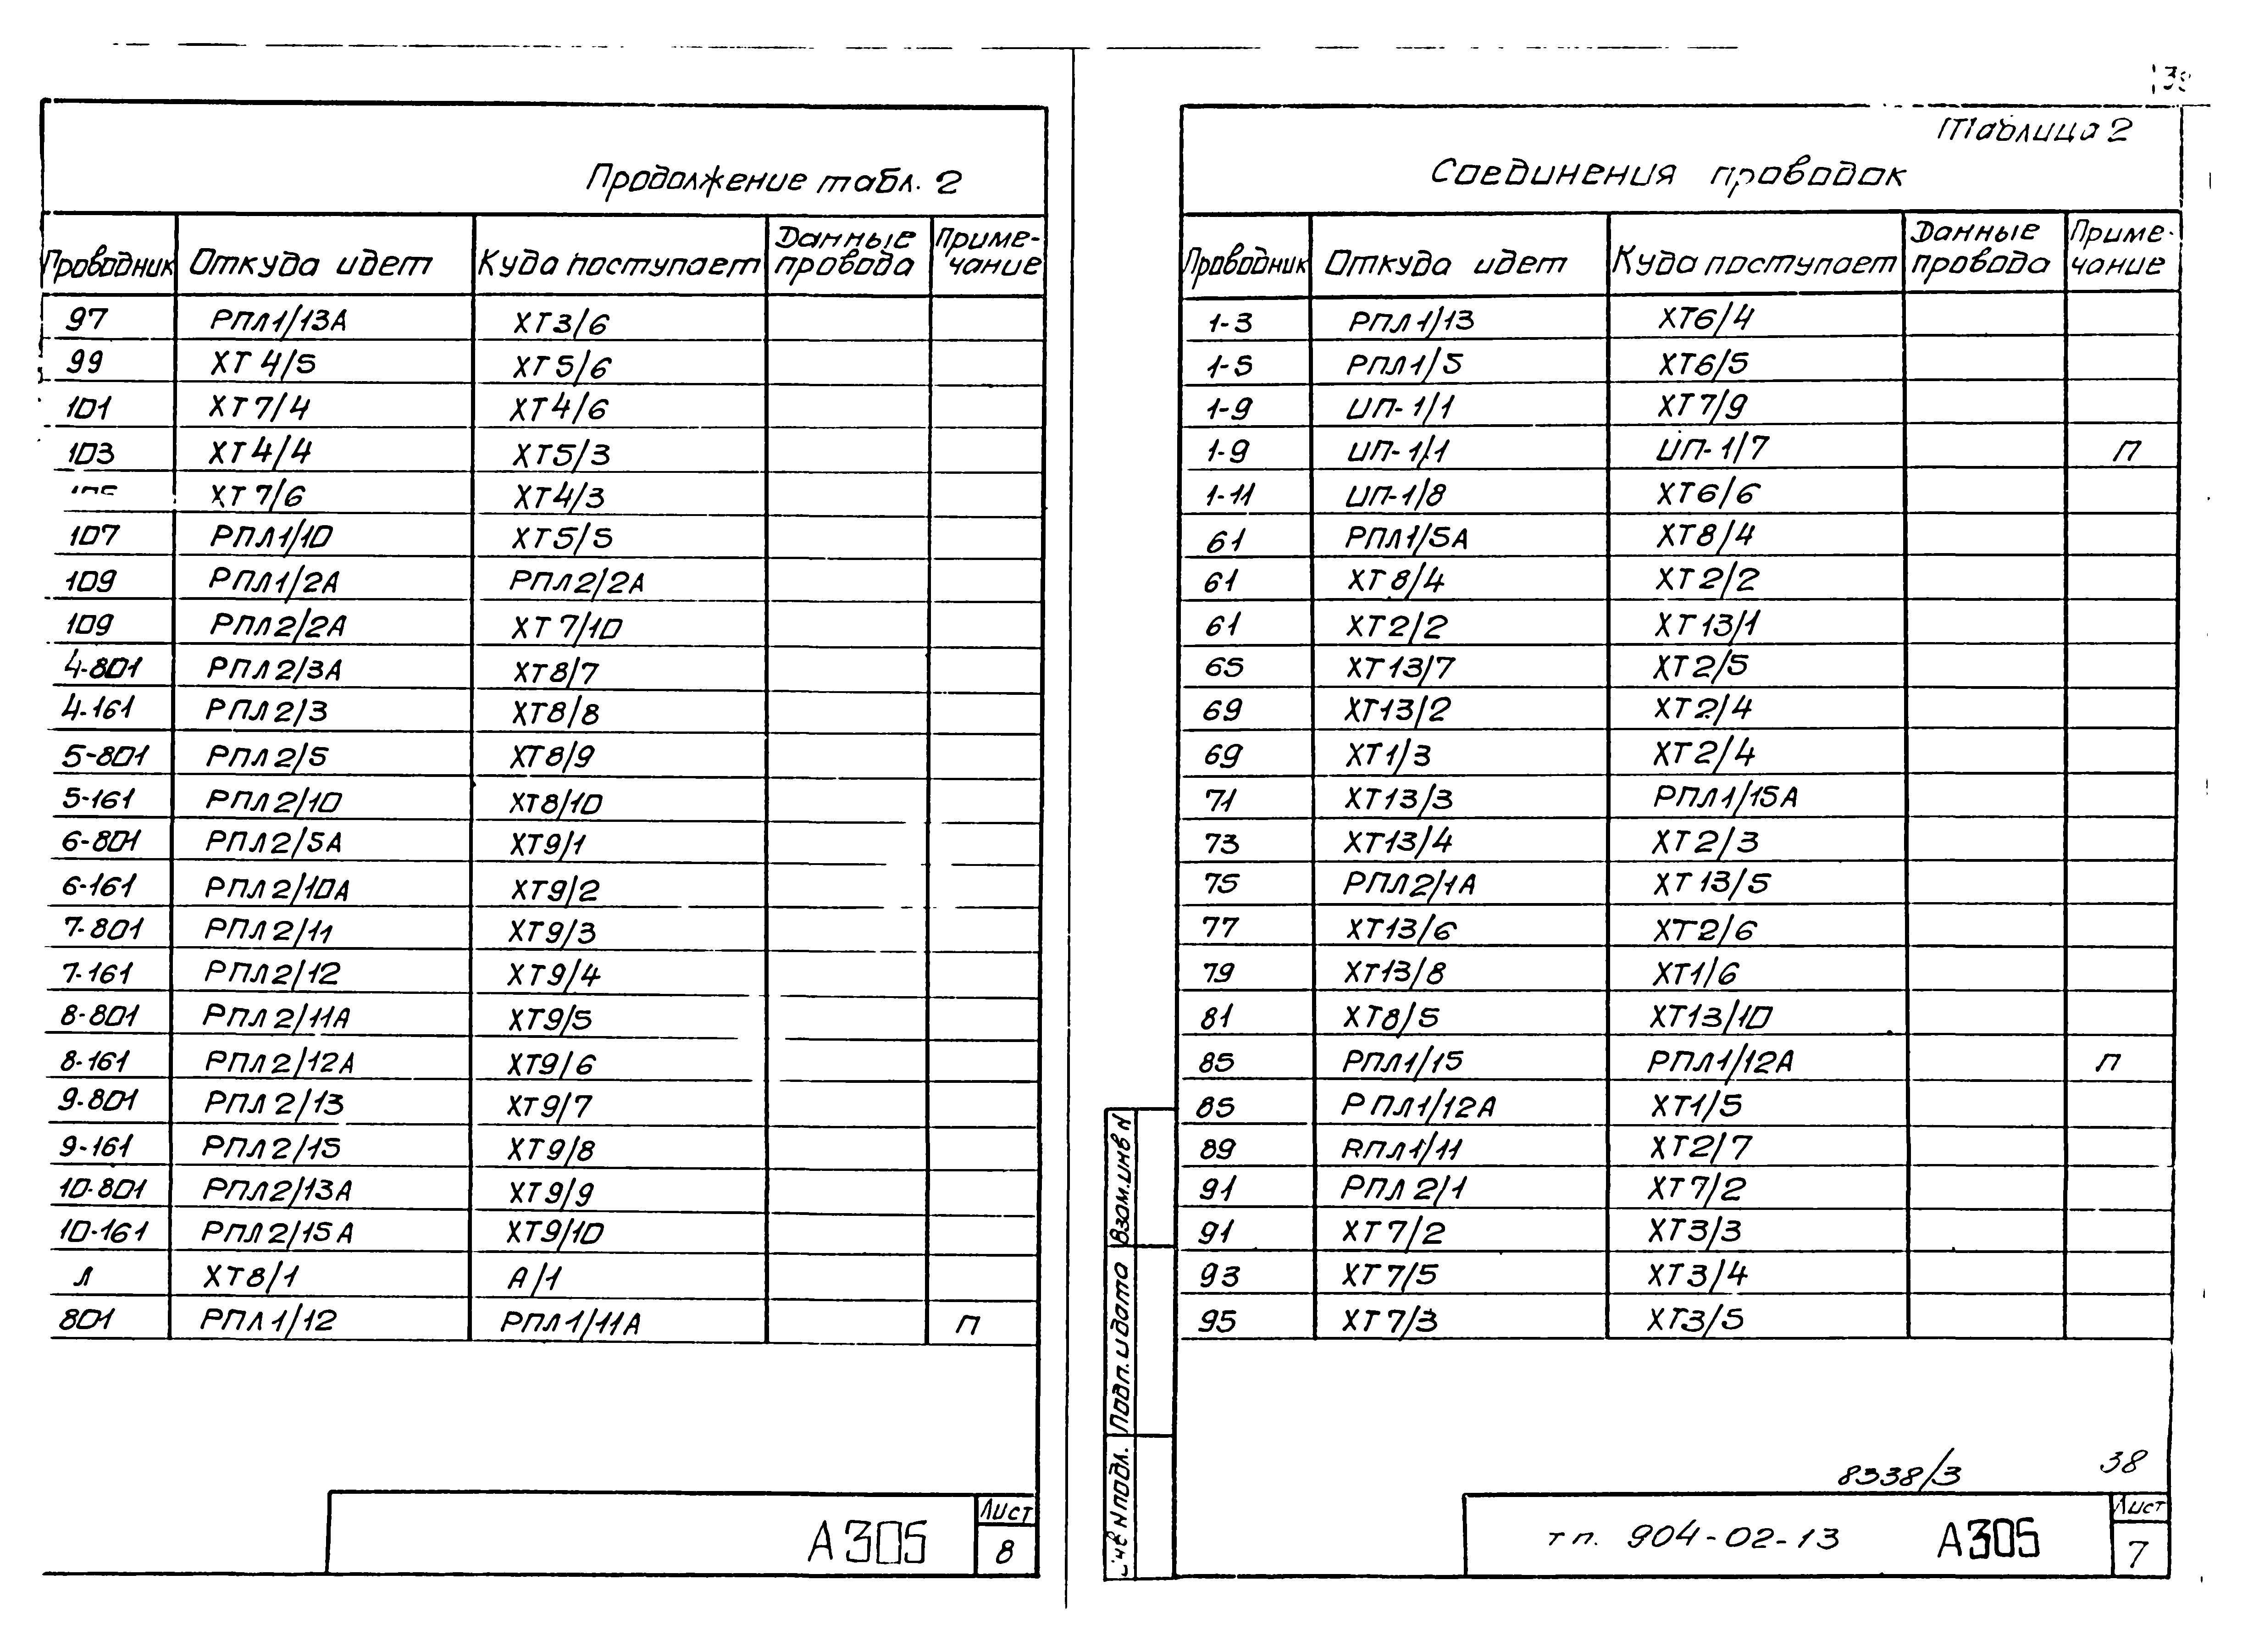 Продолжение табл. 2
Проводник Откуда идет Куда поступает Данные провода Приме-чание
97 РПЛ1/13А ХТ3/6
99 ХТ4/5 ХТ5/6
101 ХТ7/4 ХТ4/6
103 ХТ4/4 ХТ5/3
ХТ7/6 ХТ4/3
107 РПЛ1/10 ХТ5/5
109 РПЛ1/2А РПЛ2/2А
109 РПЛ2/2А ХТ7/10
4-801 РПЛ2/3А ХТ8/7
4-161 РПЛ2/3 ХТ8/8
5-801 РПЛ2/5 ХТ8/9
5-161 РПЛ2/10 ХТ8/10
6-801 РПЛ2/5А ХТ9/1
6-161 РПЛ2/10А ХТ9/2
7-801 РПЛ2/11 ХТ9/3
7-161 РПЛ2/12 ХТ9/4
8-801 РПЛ2/11А ХТ9/5
8-161 РПЛ2/12А ХТ9/6
9-801 РПЛ2/13 ХТ9/7
9-161 РПЛ2/15 ХТ9/8
10-801 РПЛ2/13А ХТ9/9
10-161 РПЛ2/15А ХТ9/10
Л ХТ8/1 А/1
801 РПЛ1/12 РПЛ1/11А П
А305
Лист
8
Таблица 2
Соединения проводок
Проводник Откуда идет Куда поступает Данные провода Приме-чание
1-3 РПЛ1/13 ХТ6/4
1-5 РПЛ1/5 ХТ6/5
1-9 ИП-1/1 ХТ7/9
1-9 ИП-1/1 ИП-1/7 П
1-11 ИП-1/8 ХТ6/6
61 РПЛ1/5А ХТ8/4
61 ХТ8/4 ХТ2/2
61 ХТ2/2 ХТ13/1
65 ХТ13/7 ХТ2/5
69 ХТ13/2 ХТ2/4
69 ХТ1/3 ХТ2/4
71 ХТ13/3 РПЛ1/15А
73 ХТ13/4 ХТ2/3
75 РПЛ2/1А ХТ13/5
77 ХТ13/6 ХТ2/6
79 ХТ13/8 ХТ1/6
81 ХТ8/5 ХТ13/10
85 РПЛ1/15 РПЛ1/12А П
85 РПЛ1/12А ХТ1/5
89 RПЛ1/11 ХТ2/7
91 РПЛ2/1 ХТ7/2
91 ХТ7/2 ХТ3/3
93 ХТ7/5 ХТ3/4
95 ХТ7/3 ХТ3/5
Взам.инв N
Подп. и дата
N подл.
8338/3 38
тп. 904-02-13 А305
Лист
7